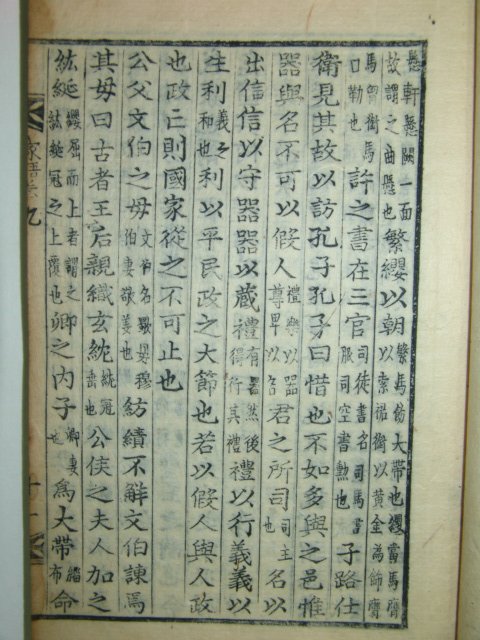 懸軒懸闕一面故謂之曲懸也繁纓以朝繁馬飾大帶也纓當馬膺以索裙銜以黃金為飾膺
馬胷銜馬口勒也許之書在三官司徒書名司馬書服司空書勲也子路仕
衛見其故以訪孔子孔子曰惜也不如多與之邑惟
器與名不可以假人禮樂以器尊卑以名君之所司司主也名以
出信信以守器器以藏禮有器然後得行其禮禮以行義義以
生利義之和也利以平民政之大節也若以假人與人政
也政亡則國家從之不可止也
公父文伯之母文伯名歜妻敬姜也紡績不觧文伯諫焉
其母曰古者王后親織玄紞紞冠垂也公侯之夫人加之
紘綖纓屈而上者謂之紘綖冠之上覆也卿之內子卿妻也為大帶緇布命
家語卷九